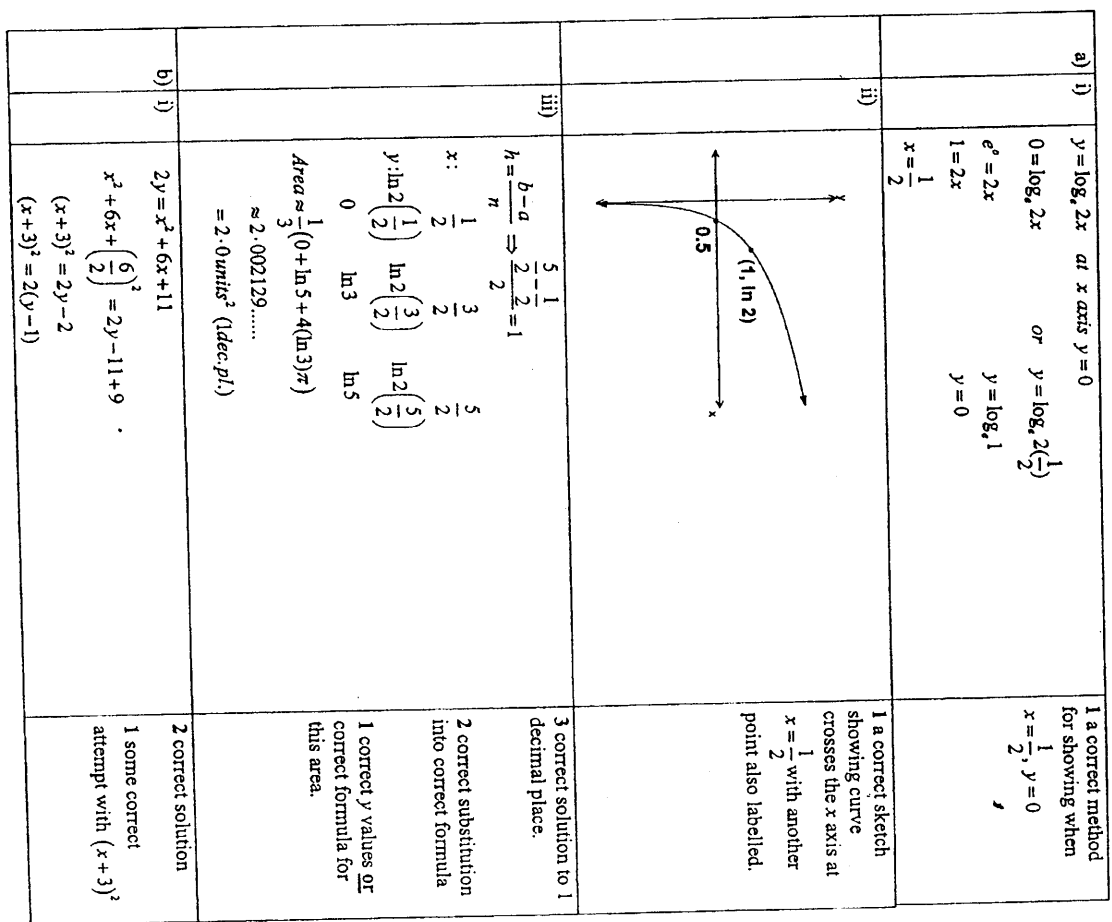 a) i) y = logₑ 2x at x axis y = 0
0 = logₑ 2x or y = logₑ 2(1/2)
e⁰ = 2x y = logₑ 1
1 = 2x y = 0
x = 1/2
1 a correct method
for showing when
x = 1/2, y = 0
ii)
y
(1, ln 2)
0.5
x
1 a correct sketch
showing curve
crosses the x axis at
x = 1/2 with another
point also labelled.
iii)
h = (b - a)/n ⇒ (5/2 - 1/2)/2 = 1
x: 1/2 3/2 5/2
y: ln 2(1/2) ln 2(3/2) ln 2(5/2)
0 ln 3 ln 5
Area ≈ 1/3(0 + ln 5 + 4(ln 3)π)
≈ 2·002129......
= 2·0 units² (1dec.pl.)
3 correct solution to 1
decimal place.
2 correct substitution
into correct formula
1 correct y values or
correct formula for
this area.
b) i) 2y = x² + 6x + 11
x² + 6x + (6/2)² = 2y - 11 + 9
(x + 3)² = 2y - 2
(x + 3)² = 2(y - 1)
2 correct solution
1 some correct
attempt with (x + 3)²